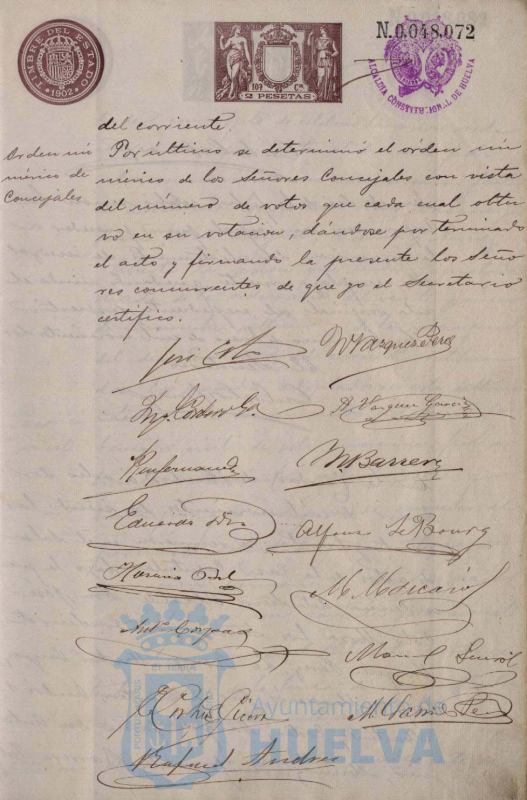 TIMBRE DEL ESTADO
1902
2 PESETAS
N.0.048.072
ALCALDIA CONSTITUCIONAL DE HUELVA
del corriente.
Orden nu
mérico de
Concejales
Por último se determinó el orden nu
mérico de los Señores Concejales con vista
del número de votos que cada cual obtu
vo en su votación, dándose por terminado
el acto y firmando la presente los Seño
res concurrentes de que yo el Secretario
certifico.
W Vazquez Perez
A. Vazquez Garcia
M. Barrera
Eduardo
Alfonso Le Bourg
M. Mascarós
Manuel
Rafael Andrés
Ayuntamiento de
HUELVA